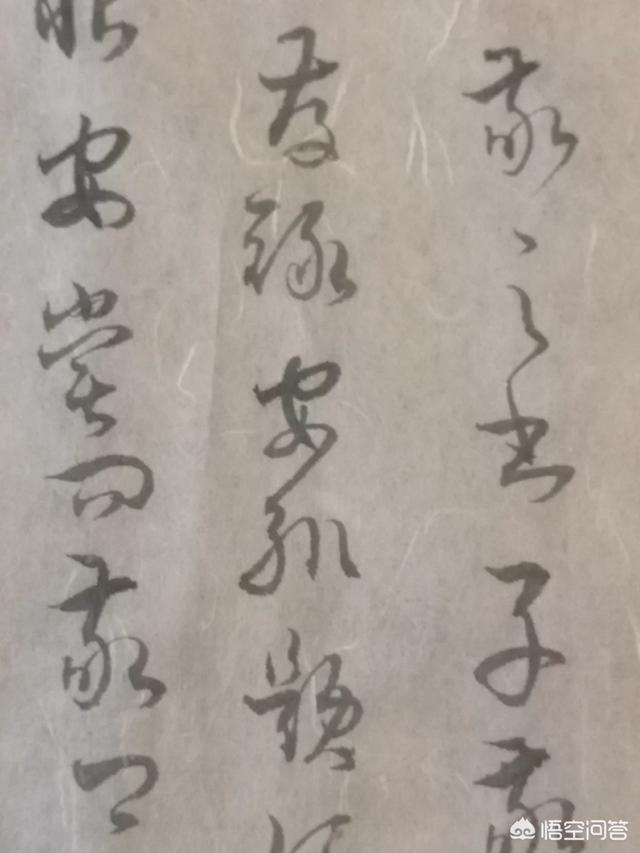 敬之書子敬
存錄安輒題
恨安嘗問敬卿
悟空问答